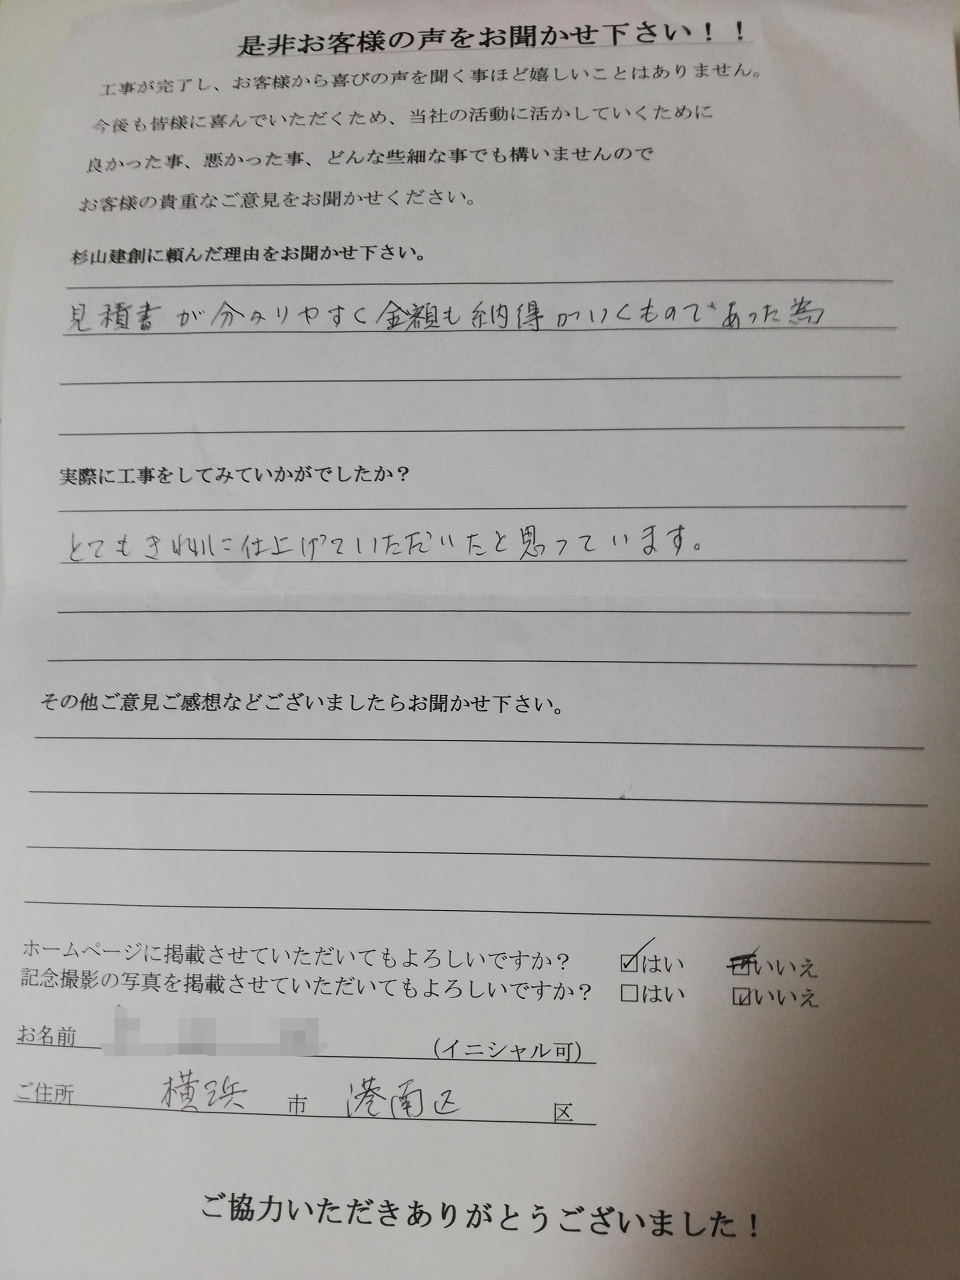 是非お客様の声をお聞かせ下さい！！
工事が完了し、お客様から喜びの声を聞く事ほど嬉しいことはありません。
今後も皆様に喜んでいただくため、当社の活動に活かしていくために
良かった事、悪かった事、どんな些細な事でも構いませんので
お客様の貴重なご意見をお聞かせください。
杉山建創に頼んだ理由をお聞かせ下さい。
見積書が分かりやすく金額も納得がいくものであった為
実際に工事をしてみていかがでしたか？
とてもきれいに仕上げていただいたと思っています。
その他ご意見ご感想などございましたらお聞かせ下さい。
ホームページに掲載させていただいてもよろしいですか？ ☑はい ☑いいえ
記念撮影の写真を掲載させていただいてもよろしいですか？ □はい ☑いいえ
お名前 （イニシャル可）
ご住所 横浜 市 港南区 区
ご協力いただきありがとうございました！